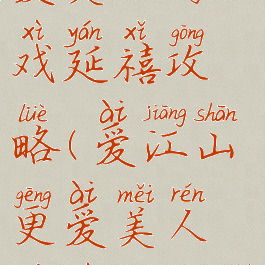 xì yán xǐ gōng
戏延禧攻
lüè ài jiāng shān
略(爱江山
gēng ài měi rén
更爱美人